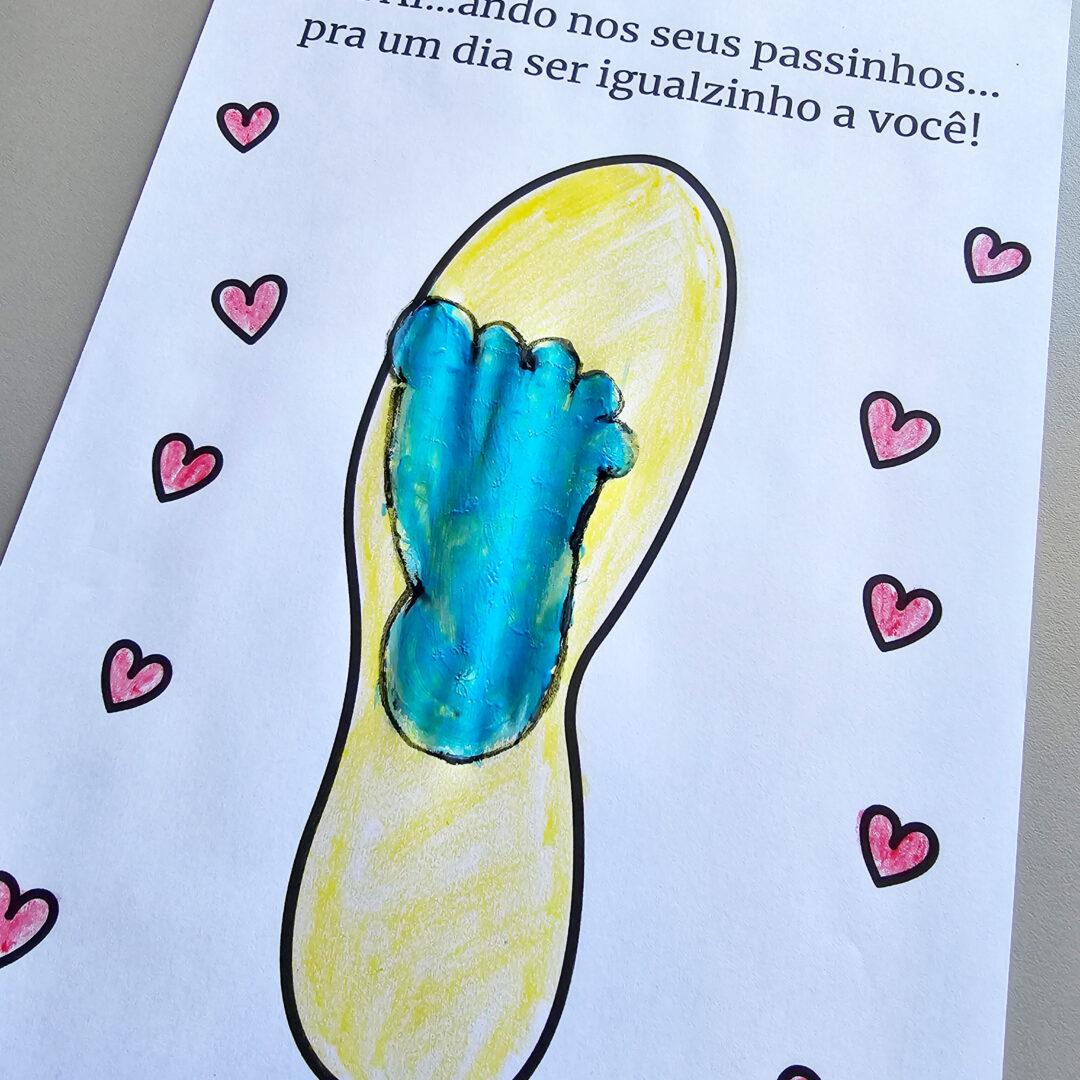 nos seus passinhos...
pra um dia ser igualzinho a você!